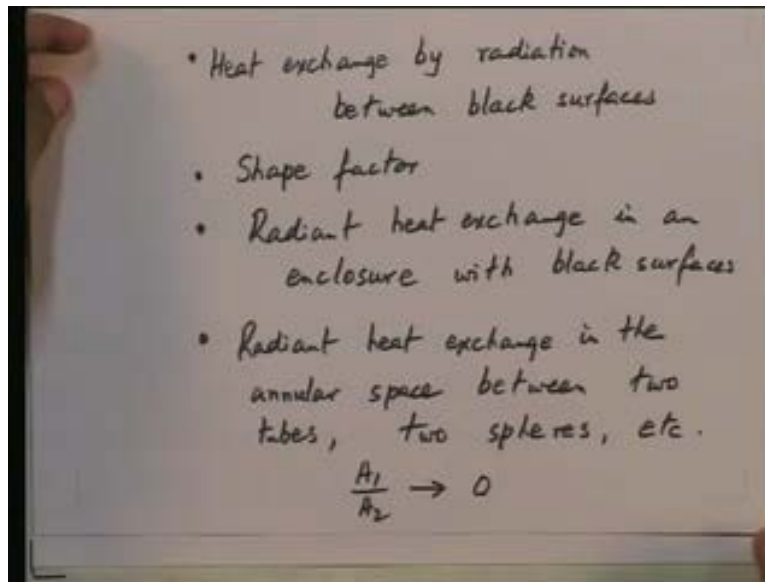 • Heat exchange by radiation
between black surfaces
• Shape factor
• Radiant heat exchange in an
enclosure with black surfaces
• Radiant heat exchange in the
annular space between two
tubes, two spheres, etc.
A1/A2 → 0